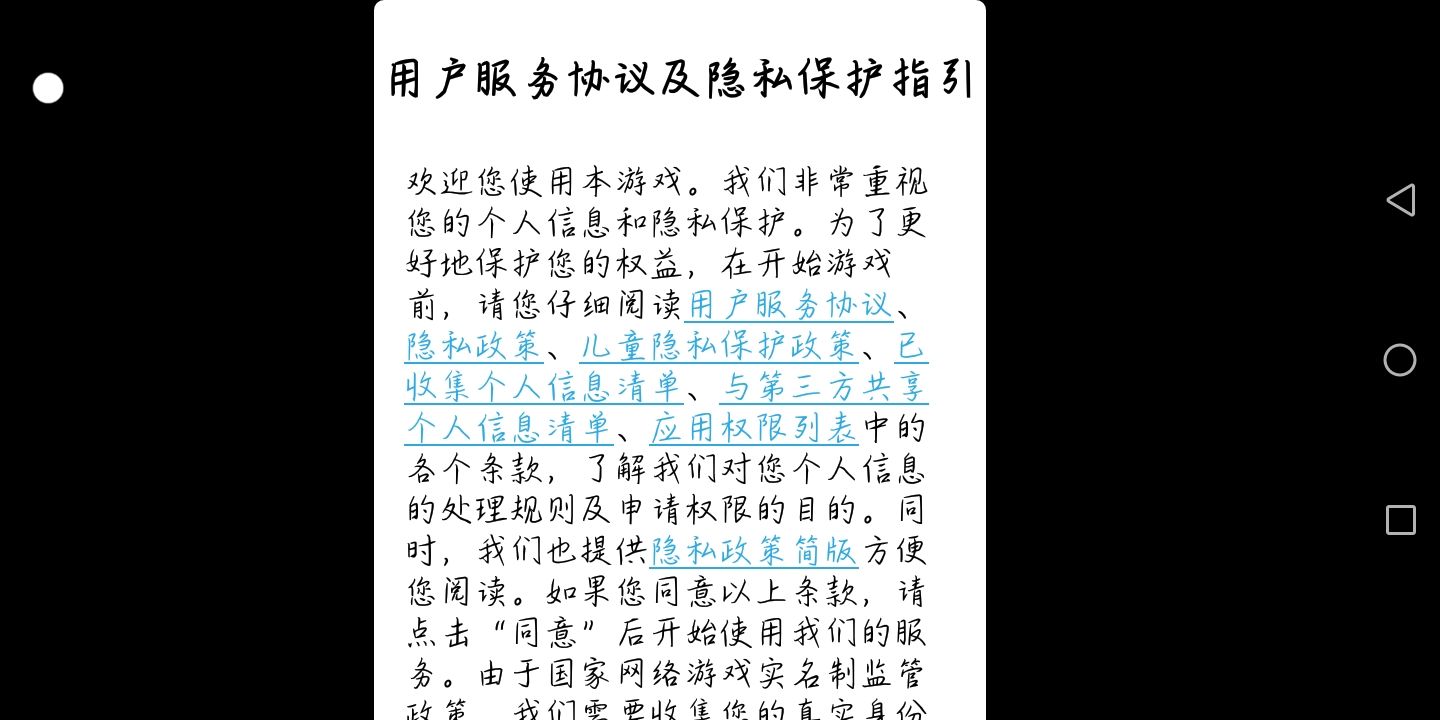 用户服务协议及隐私保护指引
欢迎您使用本游戏。我们非常重视
您的个人信息和隐私保护。为了更
好地保护您的权益，在开始游戏
前，请您仔细阅读用户服务协议、
隐私政策、儿童隐私保护政策、已
收集个人信息清单、与第三方共享
个人信息清单、应用权限列表中的
各个条款，了解我们对您个人信息
的处理规则及申请权限的目的。同
时，我们也提供隐私政策简版方便
您阅读。如果您同意以上条款，请
点击“同意”后开始使用我们的服
务。由于国家网络游戏实名制监管
政策，我们需要收集您的真实身份